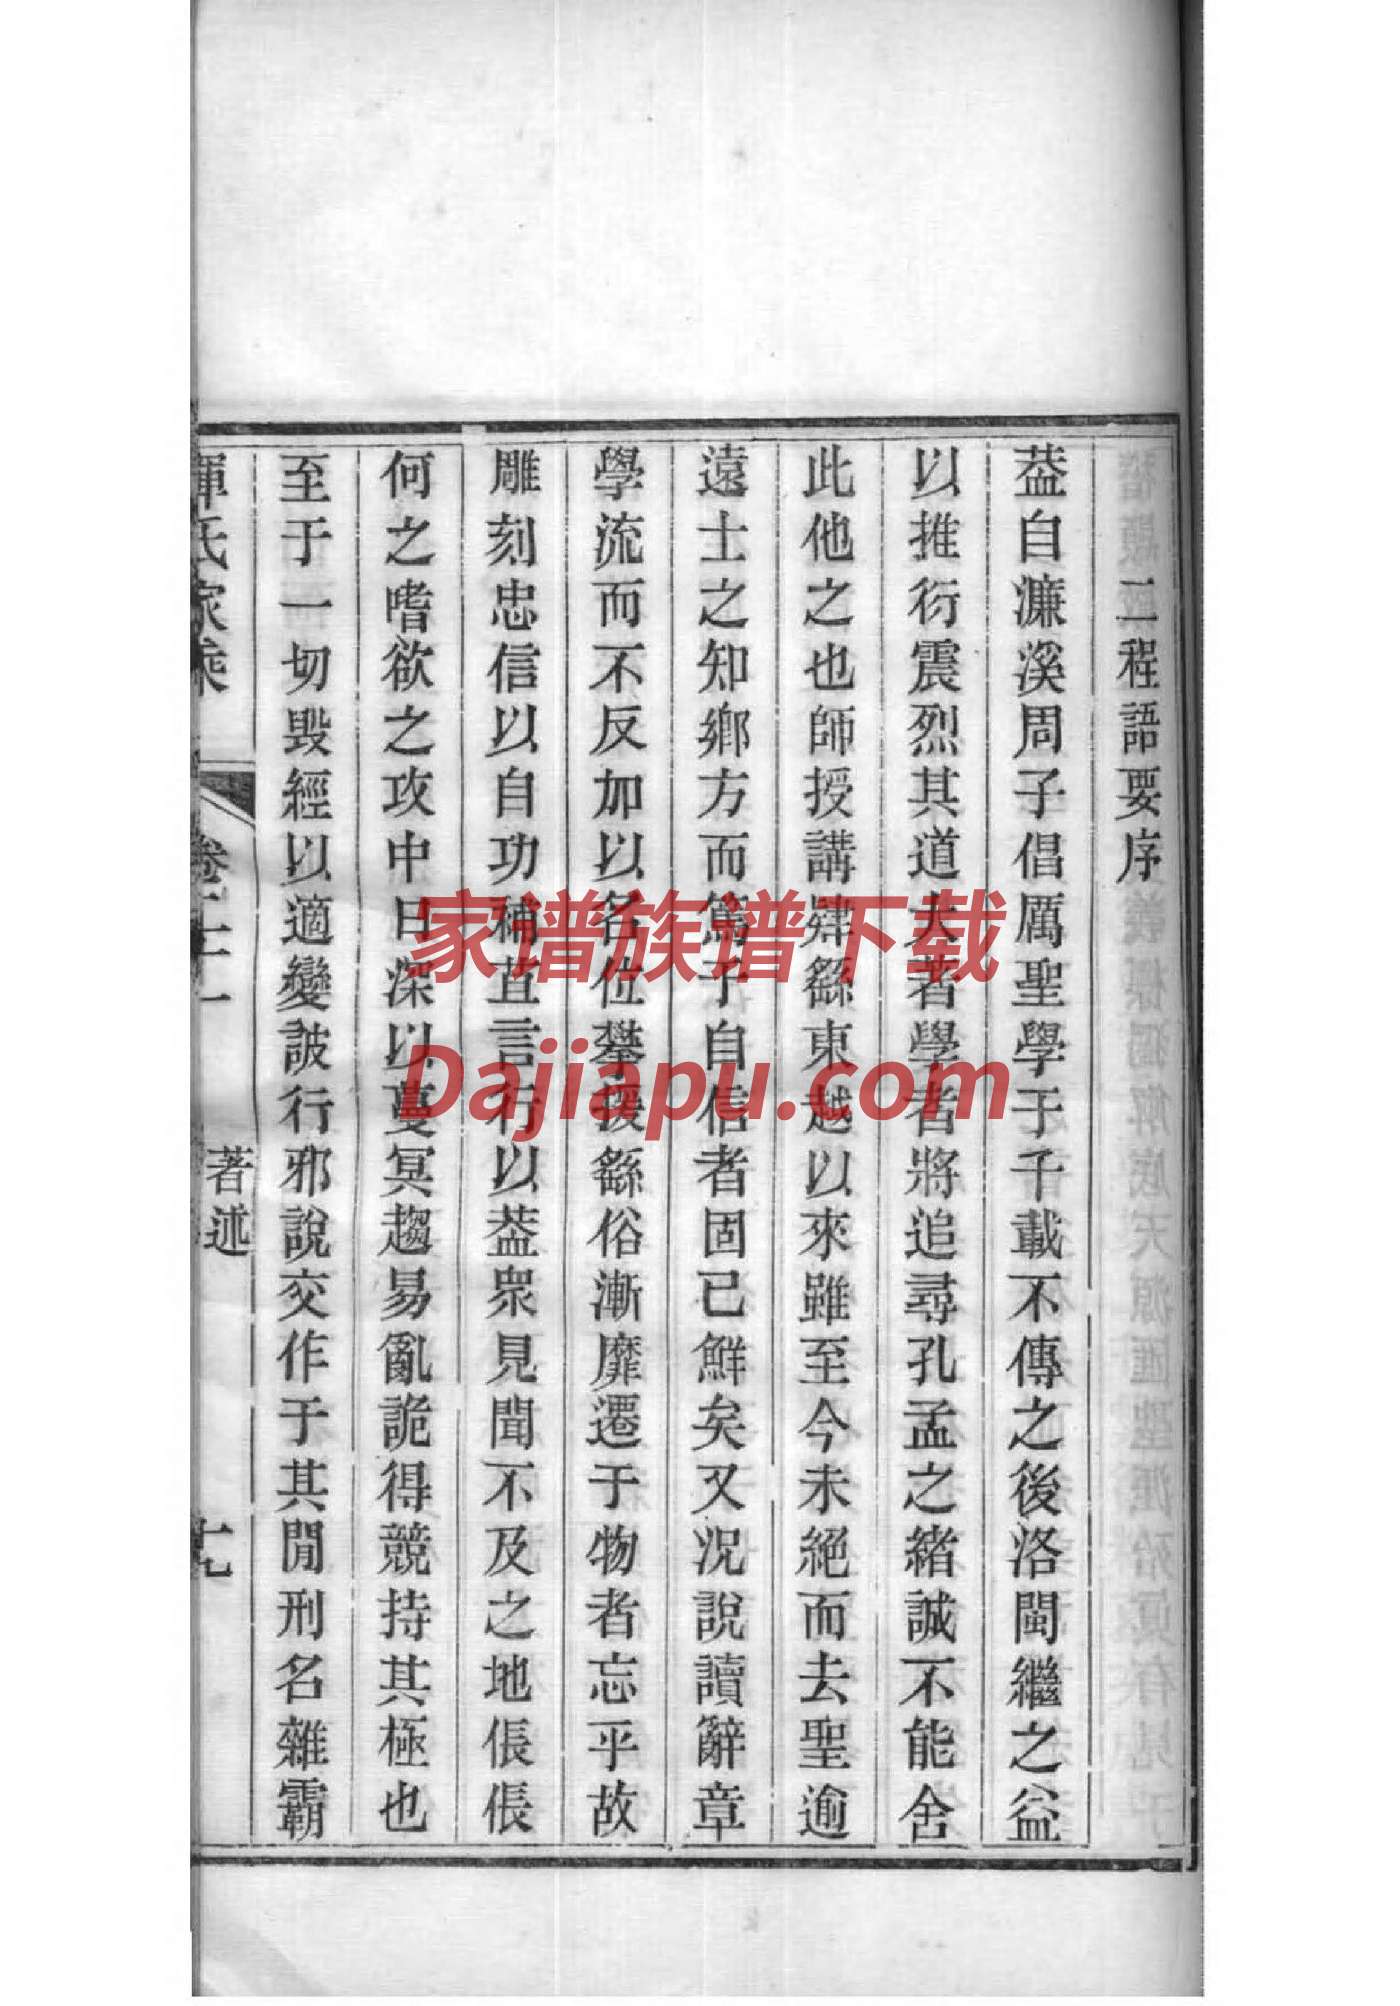 二程語要序
葢自濂溪周子倡厲聖學于千載不傳之後洛閩繼之益
以推衍震烈其道大著學者將追尋孔孟之緒誠不能舍
此他之也師授講肄繇東越以來雖至今未絕而去聖逾
遠士之知鄉方而篤于自信者固已鮮矣又况說讀辭章
學流而不反加以名位攀援繇俗漸靡遷于物者忘乎故
雕刻忠信以自功補苴言行以葢衆見聞不及之地倀倀
何之嗜欲之攻中日深以蔓冥趨易亂詭得競持其極也
至于一切毀經以適變詖行邪說交作于其閒刑名雜霸
惲氏家乘
卷二十一
著述
十七
家谱族谱下载
Dajiapu.com